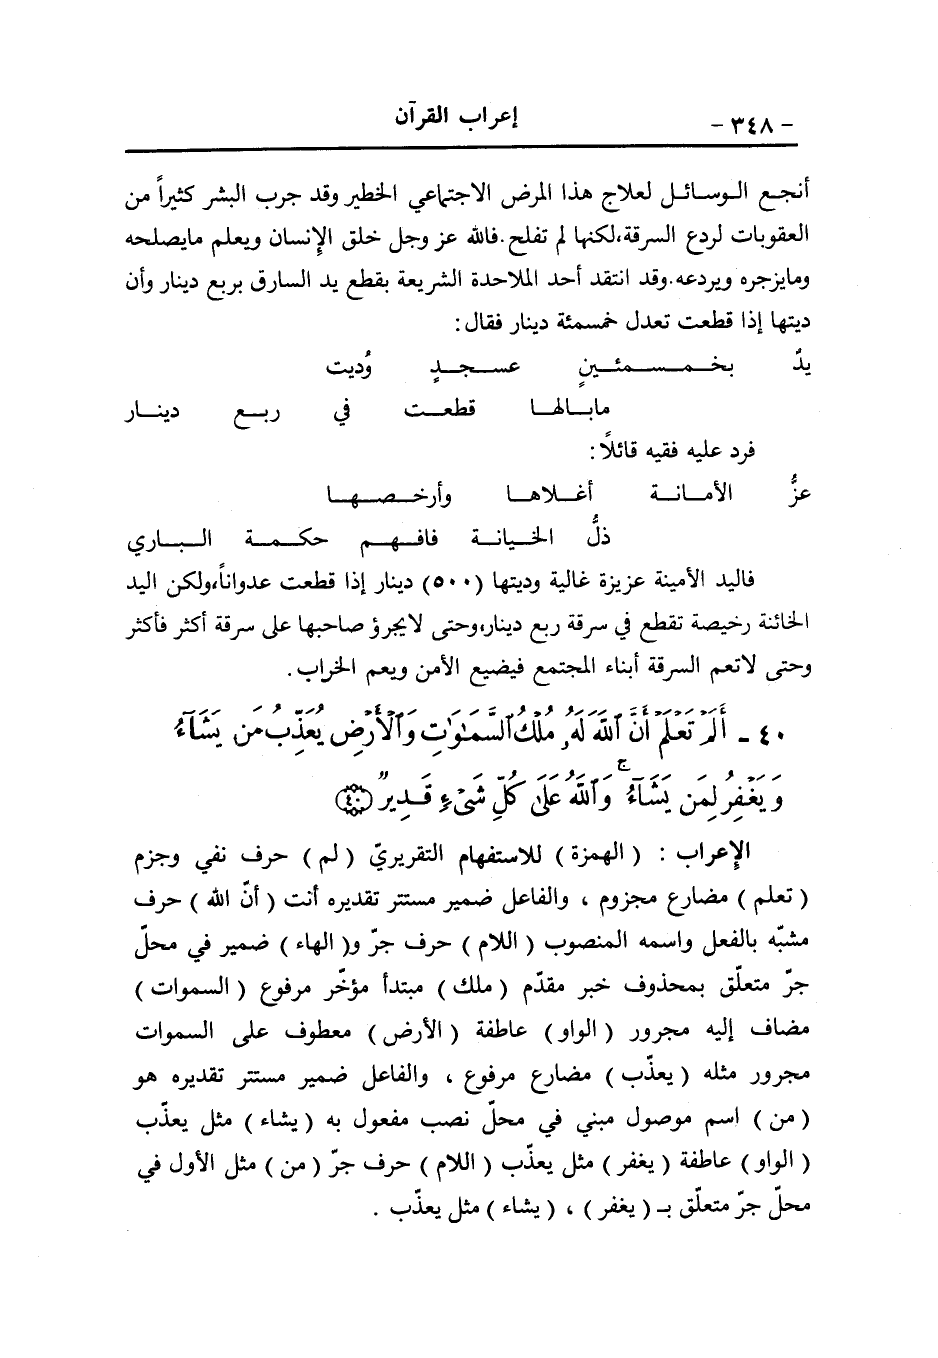 إعراب القرآن
- ٣٤٨ -
أنجع الوسائل لعلاج هذا المرض الاجتماعي الخطير وقد جرب البشر كثيراً من
العقوبات لردع السرقة،لكنها لم تفلح.فالله عز وجل خلق الإنسان ويعلم مايصلحه
ومايزجره ويردعه.وقد انتقد أحد الملاحدة الشريعة بقطع يد السارق بربع دينار وأن
ديتها إذا قطعت تعدل خمسمئة دينار فقال:
يدٌ بخمسمئينٍ عسجدٍ وُديت
مابالها قطعت في ربع دينار
فرد عليه فقيه قائلاً:
عزُّ الأمانة أغلاها وأرخصها
ذلُّ الخيانة فافهم حكمة الباري
فاليد الأمينة عزيزة غالية وديتها (٥٠٠) دينار إذا قطعت عدواناً،ولكن اليد
الخائنة رخيصة تقطع في سرقة ربع دينار،وحتى لايجرؤ صاحبها على سرقة أكثر فأكثر
وحتى لاتعم السرقة أبناء المجتمع فيضيع الأمن ويعم الخراب.
٤٠ - أَلَمْ تَعْلَمْ أَنَّ ٱللَّهَ لَهُۥ مُلْكُ ٱلسَّمَٰوَٰتِ وَٱلْأَرْضِ يُعَذِّبُ مَن يَشَآءُ
وَيَغْفِرُ لِمَن يَشَآءُ ۗ وَٱللَّهُ عَلَىٰ كُلِّ شَىْءٍ قَدِيرٌ ﴿٤٠﴾
الإعراب : ( الهمزة ) للاستفهام التقريريّ ( لم ) حرف نفي وجزم
( تعلم ) مضارع مجزوم ، والفاعل ضمير مستتر تقديره أنت ( أنّ الله ) حرف
مشبّه بالفعل واسمه المنصوب ( اللام ) حرف جرّ و( الهاء ) ضمير في محلّ
جرّ متعلّق بمحذوف خبر مقدّم ( ملك ) مبتدأ مؤخّر مرفوع ( السموات )
مضاف إليه مجرور ( الواو ) عاطفة ( الأرض ) معطوف على السموات
مجرور مثله ( يعذّب ) مضارع مرفوع ، والفاعل ضمير مستتر تقديره هو
( من ) اسم موصول مبني في محلّ نصب مفعول به ( يشاء ) مثل يعذّب
( الواو ) عاطفة ( يغفر ) مثل يعذّب ( اللام ) حرف جرّ ( من ) مثل الأول في
محلّ جرّ متعلّق بـ ( يغفر ) ، ( يشاء ) مثل يعذّب .